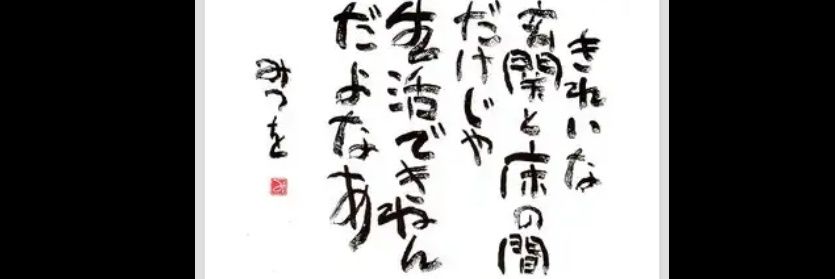 きれいな
玄関と床の間
だけじゃ
生活できねん
だよなあ
みつを